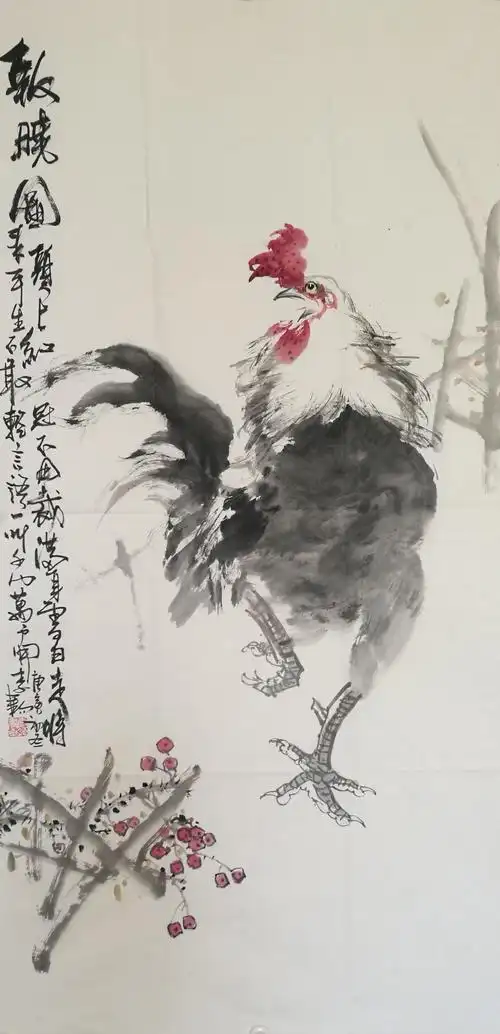 報曉圖
頭上紅冠不用裁滿身雪白走將
來平生不敢輕言語一叫千門萬戶開
庚寅